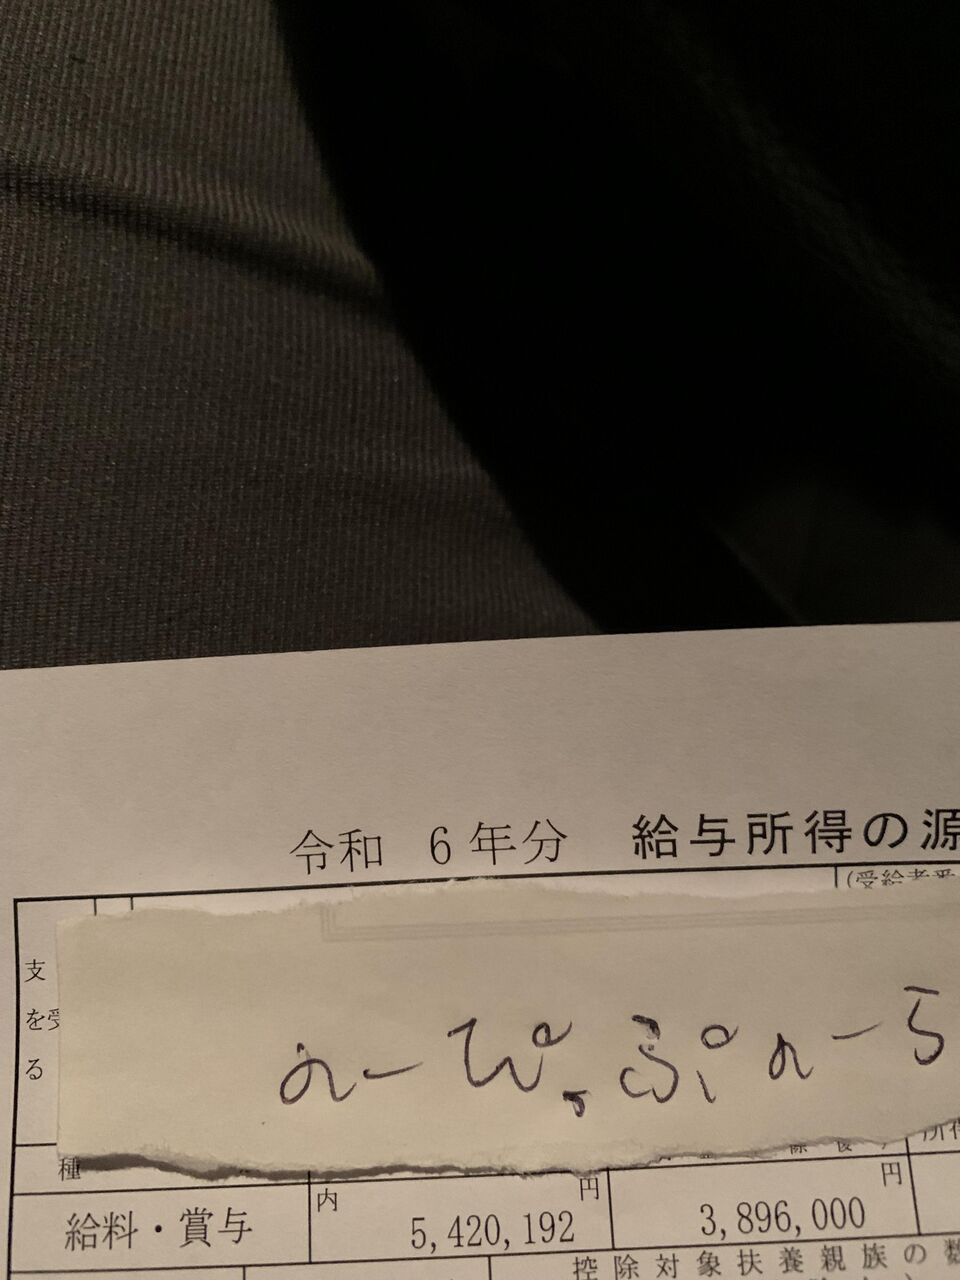 令和 6年分 給与所得の源
(受給者番
支
を受
る
んーぴ。ぷんーら
種
給料・賞与 内 5,420,192 円 3,896,000 円
控除対象扶養親族の数